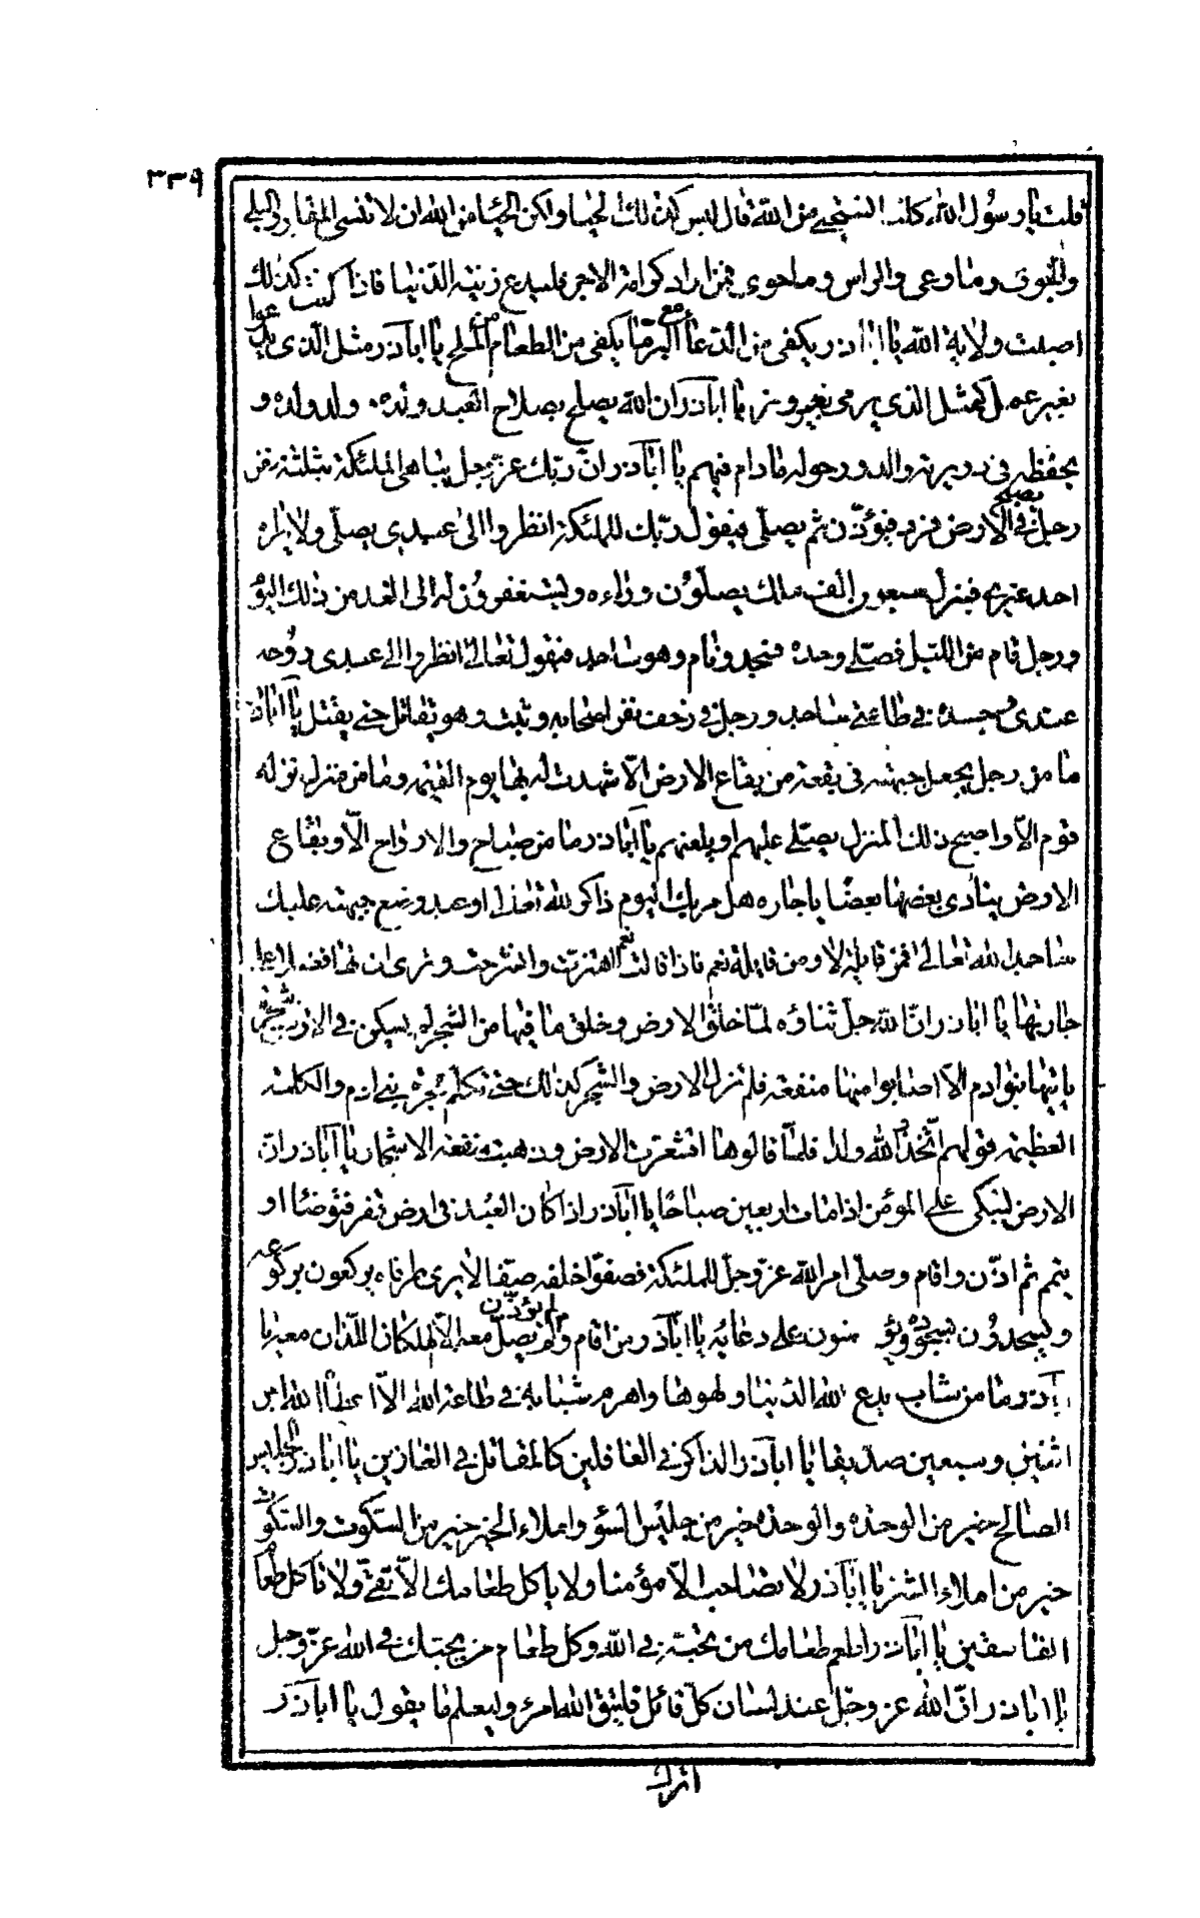 ٣٣٩
قلت يا رسول الله كلنا لنستحيى من الله قال ليس كذلك الحيا ولكن الحيا من الله ان لا تنسى المقابر والبلى
والجوف وما وعى والراس وما حوى فمن اراد كرامة الاخرة فليدع زينة الدنيا فاذا كنت كذلك
اصبت ولاية الله يا ابا ذر يكفى من الدعا مع البر ما يكفى من الطعام من الملح يا اباذر مثل الذى يدعوا
بغير عمل كمثل الذى يرمى بغير وتر يا اباذر ان الله يصلح بصلاح العبد ولده وولد ولده و
يحفظه فى دويرته والدور حوله ما دام فيهم يا اباذر ان ربك عز وجل يباهى الملئكة بثلثة نفر
رجل يصبح فى الارض فرد فيؤذن ثم يصلى فيقول ربك للملئكة انظروا الى عبدى يصلى ولا يراه
احد غيرى فينزل سبعون الف ملك يصلون وراءه ويستغفرون له الى الغد من ذلك اليوم
ورجل قام من الليل فصلى وحده فسجد ونام وهو ساجد فيقول تعالى انظروا الى عبدى روحه
عندى وجسده فى طاعتى ساجد ورجل فى زحف نفر اصحابه وثبت وهو يقاتل حتى يقتل يا اباذر
ما من رجل يجعل جبهته فى بقعة من بقاع الارض الا شهدت له بها يوم القيمه وما من منزل نزله
قوم الا واصبح ذلك المنزل يصلى عليهم او يلعنهم يا اباذر ما من صباح والا رواح الا وبقاع
الارض ينادى بعضها بعضا يا جاره هل مر بك اليوم ذاكر لله تعالى او عبد وضع جبهته عليك
ساجدا لله تعالى فمن قايلة لا ومن قايلة نعم فاذا قالت نعم اهتزت وانشرحت وترى ان لها فضلا على
جارتها يا اباذر ان الله جل ثناؤه لما خلق الارض وخلق ما فيها من الشجر لم يكن فى الارض شجرة
ياتيها بنو ادم الا اصابوا منها منفعة فلم تزل الارض والشجر كذلك حتى تكلم فجرة بنى ادم والكلمة
العظيمة قولهم اتخذ الله ولدا فلما قالوها اقشعرت الارض وذهبت منفعة الاشجار يا اباذر ان
الارض لتبكى على المؤمن اذا مات اربعين صباحا يا اباذر اذا كان العبد فى ارض قفر فتوضا او
تيمم ثم اذن واقام وصلى امر الله عز وجل الملئكة فصفوا خلفه صفا لا يرى طرفاه يركعون بركوعه
ويسجدون بسجوده ويؤمنون على دعائه يا اباذر من اقام ولم يؤذن لم يصل معه الا الملكان اللذان معه يا
اباذر ما من شاب يدع لله الدنيا ولهوها واهرم شبابه فى طاعة الله الا اعطاه الله اجر
اثنين وسبعين صديقا يا اباذر الذاكر فى الغافلين كالمقاتل فى الفارين يا اباذر الجليس
الصالح خير من الوحدة والوحدة خير من جليس السؤ واملاء الخير خير من السكوت والسكوت
خير من املاء الشر يا اباذر لا تصاحب الا مؤمنا ولا ياكل طعامك الا تقى ولا تاكل طعام
الفاسقين يا اباذر اطعم طعامك من تحبه فى الله وكل طعام من يحبك فى الله عز وجل
يا اباذر ان الله عز وجل عند لسان كل قائل فليتق الله امرؤ وليعلم ما يقول يا اباذر
اترك